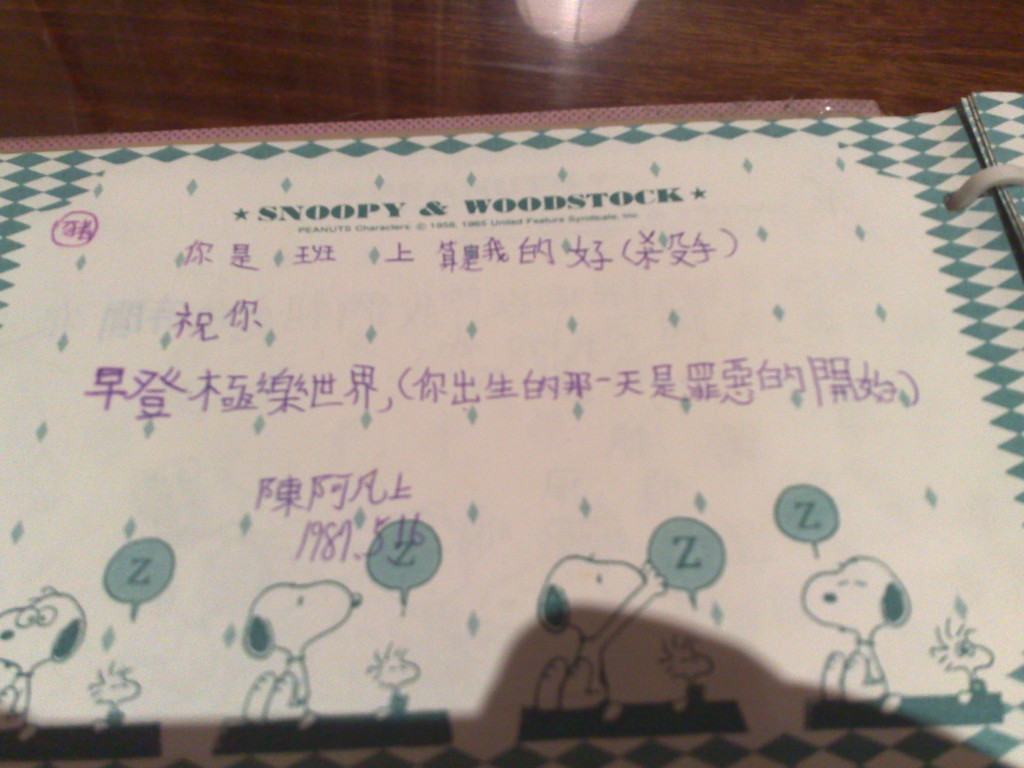 ★ SNOOPY & WOODSTOCK ★
PEANUTS Characters © 1958, 1965 United Feature Syndicate, Inc.
豬
你是班上算是我的好(杀殁手)
祝你
早登極樂世界,(你出生的那一天是罪惡的開始)
陳阿凡上
1987.5.16
Z
Z
Z
Z